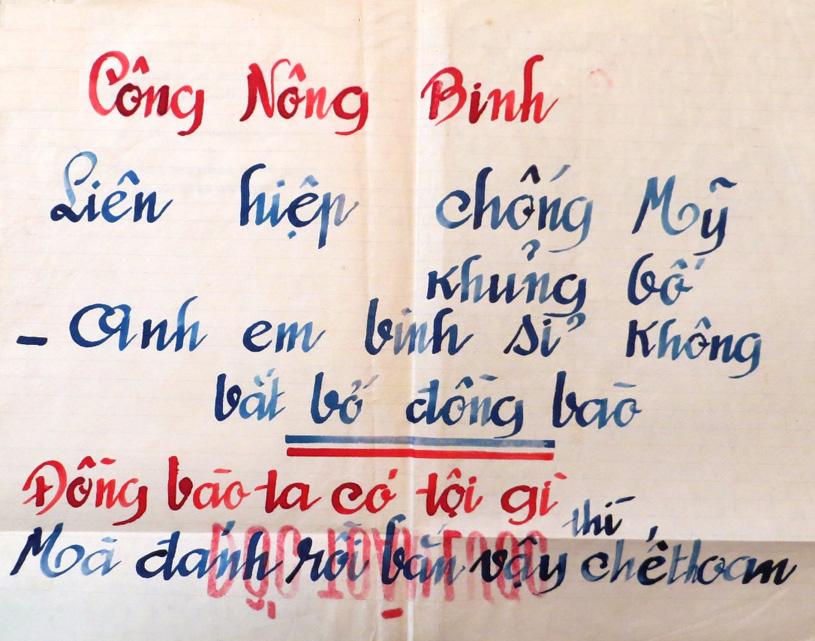 Công Nông Binh
Liên hiệp chống Mỹ
khủng bố
- Anh em binh sỉ không
bắt bố đồng bào
Đồng bào ta có tội gì
thì
Mà đánh rồi bắn vậy chết oan